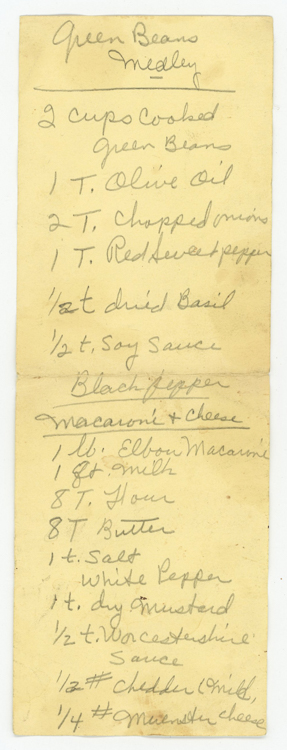 Green Beans
Medley
2 cups Cooked
Green Beans
1 T. Olive Oil
2 T. Chopped onions
1 T. Red sweet pepper
1/2 t dried Basil
1/2 t. Soy Sauce
Black pepper
Macaroni + Cheese
1 lb. Elbow Macaroni
1 qt. Milk
8 T. Flour
8 T Butter
1 t. Salt
White Pepper
1 t. dry Mustard
1/2 t. Worcestershire
Sauce
1/2 # Chedder (Mild,
1/4 # Muenster cheese